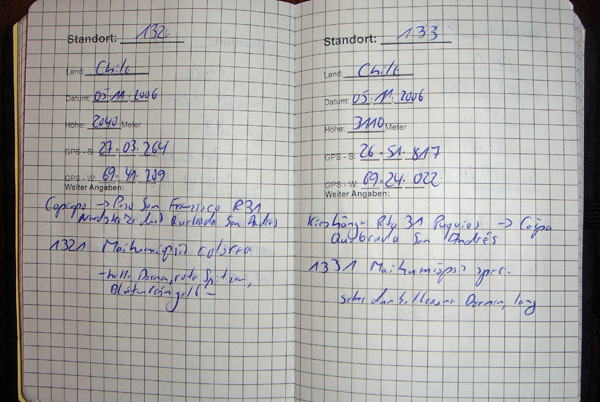 Standort: 132
Land: Chile
Datum: 05.11.2006
Höhe: 2040 Meter
GPS - S: 27.03.264
GPS - W: 69.41.209
Weiter Angaben:
Copiapo → Paso San Francisco R31
Quebrada San Andrés
1321 Maihueniopsis colorea
- helle Dornen, rote Spitzen,
Blüten gelb -
Standort: 133
Land: Chile
Datum: 05.11.2006
Höhe: 3110 Meter
GPS - S: 26.51.817
GPS - W: 69.24.022
Weiter Angaben:
Kieshänge R31 Puquios → Copiapo
Quebrada San Andrés
1331 Maihueniopsis spec.
sehr dunkelbraune Dornen, lang